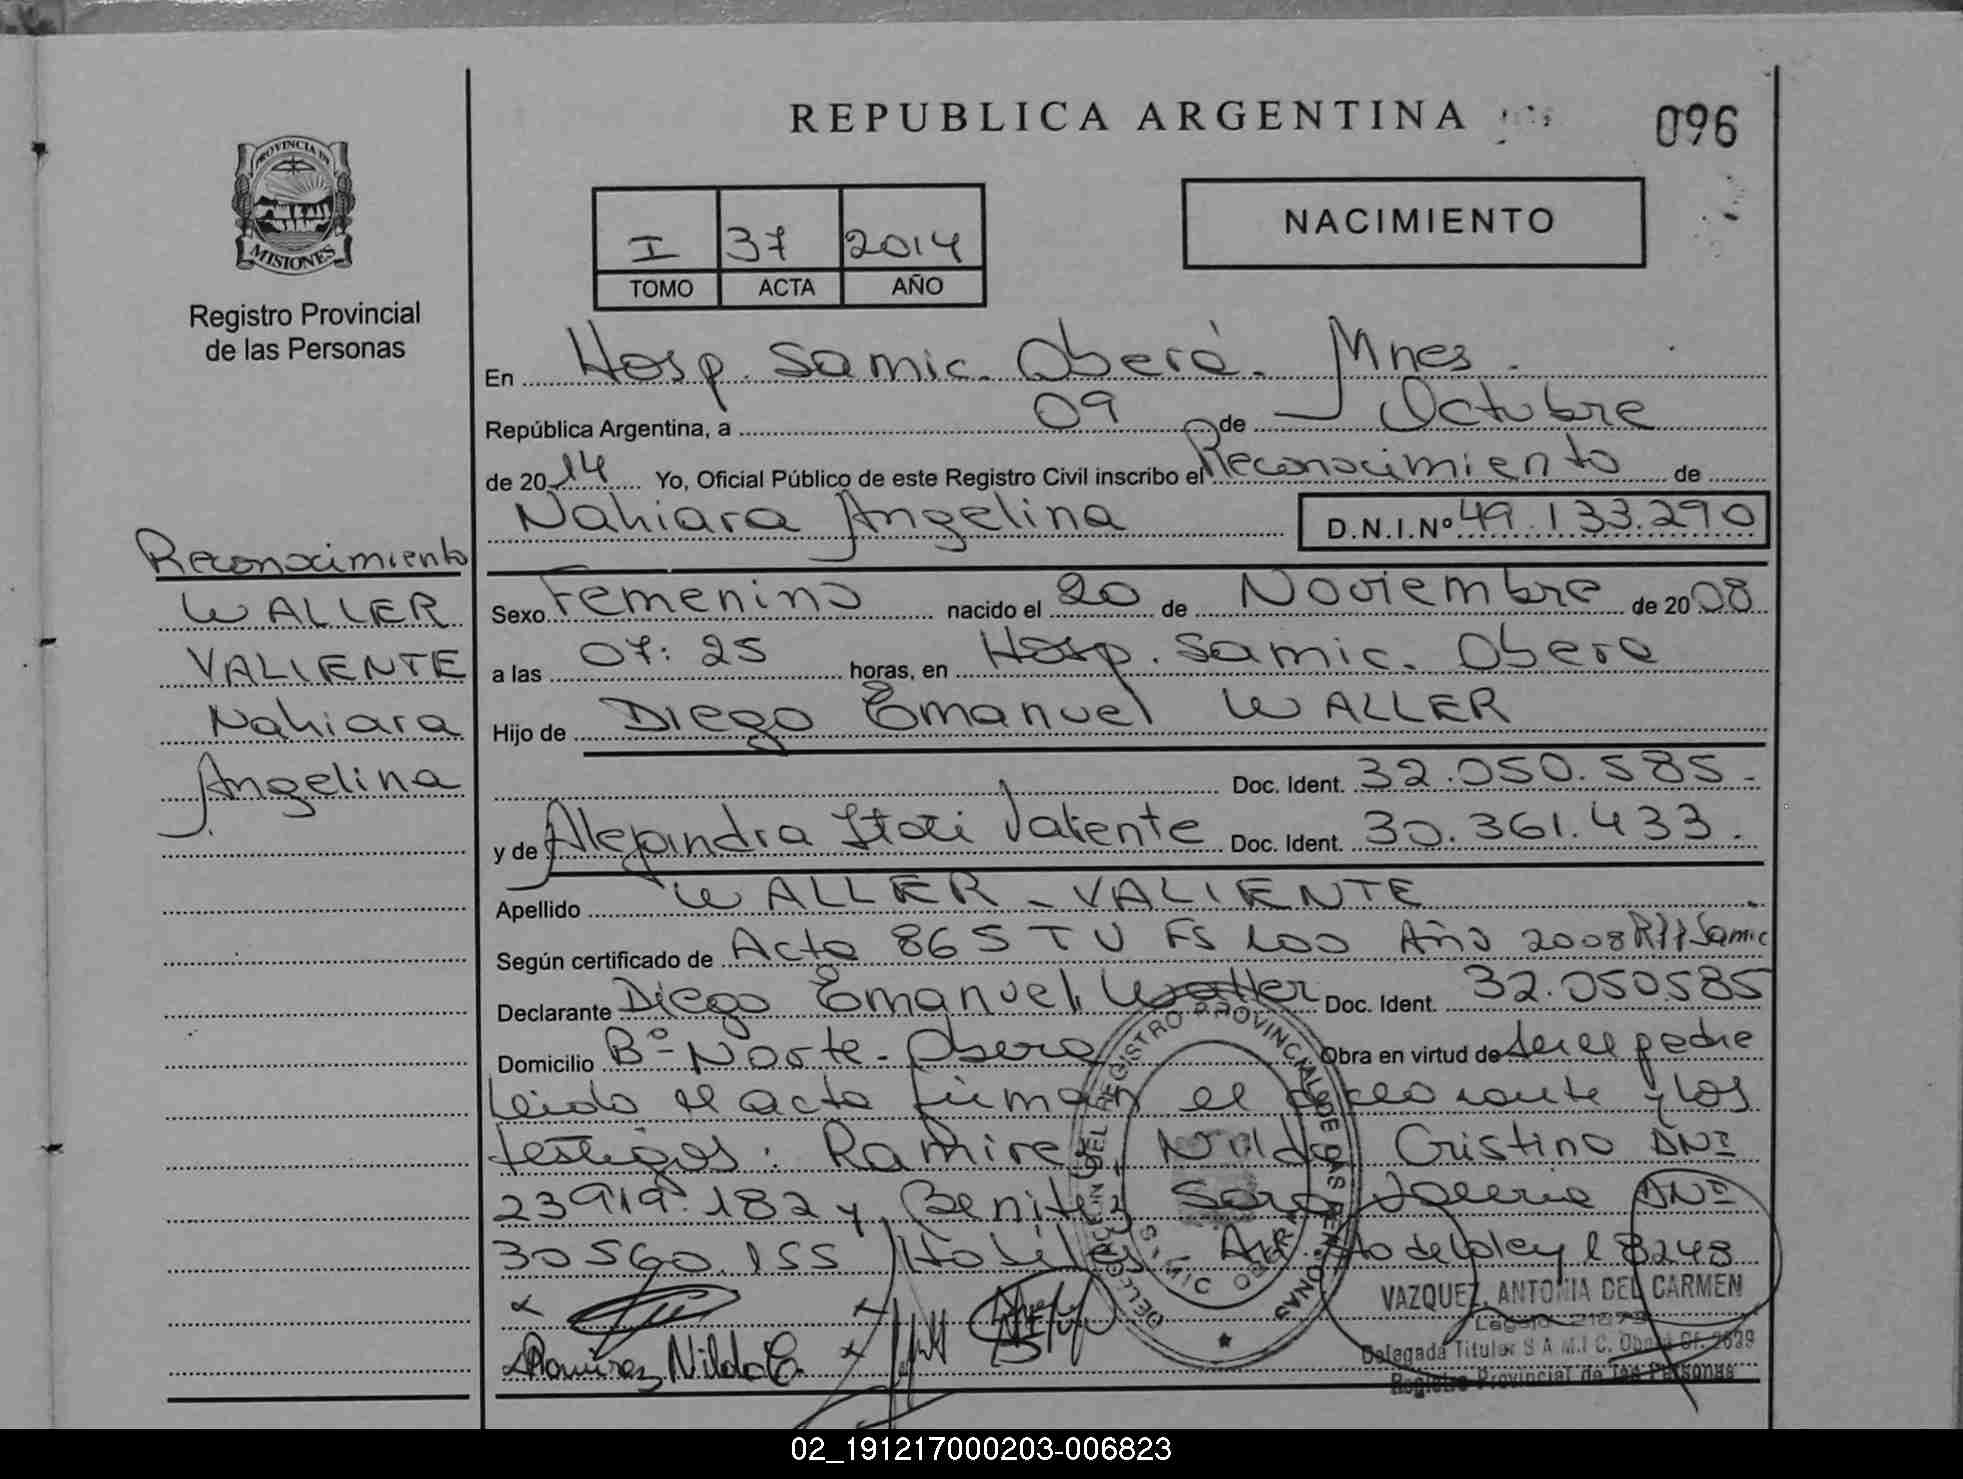 REPUBLICA ARGENTINA
096
PROVINCIA DE
MISIONES
Registro Provincial
de las Personas
I 37 2014
TOMO ACTA AÑO
NACIMIENTO
En Hosp. Samic. Oberá. Mnes.
República Argentina, a 09 de Octubre
de 2014 Yo, Oficial Público de este Registro Civil inscribo el Reconocimiento de
Nahiara Angelina D.N.I.Nº 49.133.290
Reconocimiento
WALLER
VALIENTE
Nahiara
Angelina
Sexo Femenino nacido el 20 de Noviembre de 2008
a las 07:25 horas, en Hosp. Samic. Obera
Hijo de Diego Emanuel WALLER
Doc. Ident. 32.050.585.-
y de Alejandra Itati Valiente Doc. Ident. 30.361.433.
Apellido WALLER - VALIENTE
Según certificado de Acta 865 T V Fs 100 Año 2008 Samic
Declarante Diego Emanuel Waller Doc. Ident. 32.050585
Domicilio Bº- Norte - Obera Obra en virtud de ser el padre
Leido el acta firman el declarante y los
testigos: Ramirez Nilda Cristina DNI
23919.182 y Benitez Sara DNI
30560.155 de la ley 18248
DELEGACION DEL REGISTRO PROVINCIAL DE LAS PERSONAS
VAZQUEZ, ANTONIA DEL CARMEN
Delegada Titular S.A.M.I.C. Oberá Of. 2639
Registro Provincial de las Personas
Ramirez Nilda C.
02_191217000203-006823